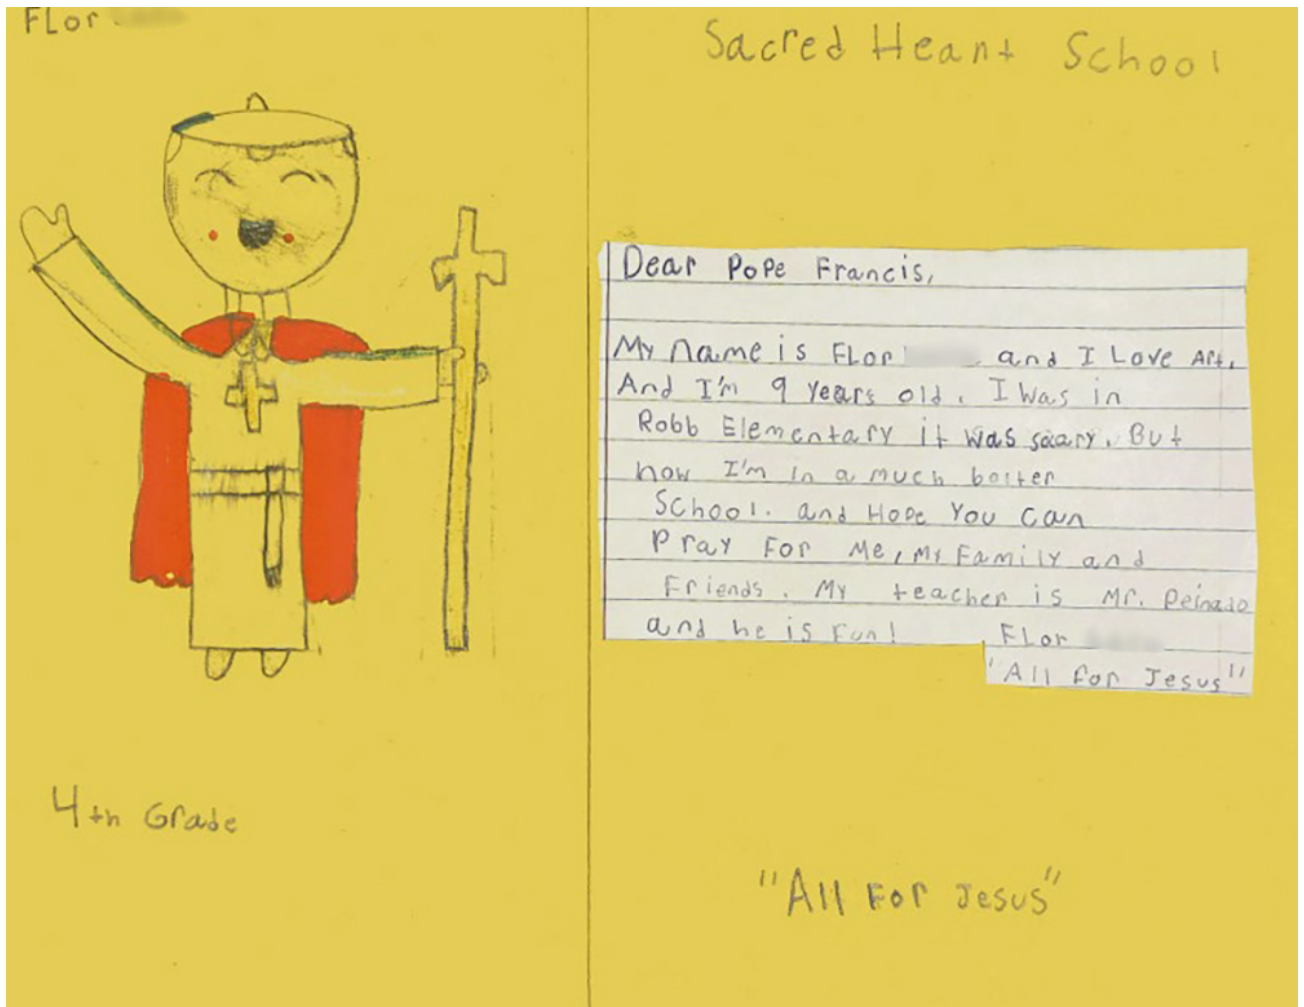 FLor
Sacred Heant School
Dear Pope Francis,
My name is FLor and I Love Art.
And I'm 9 years old. I was in
Robb Elementary it was scary. But
now I'm in a much better
School. and Hope You can
Pray For Me, My Family and
Friends. My teacher is Mr. Peinado
and he is Fun! FLor
"All For Jesus"
4th Grade
"All For Jesus"